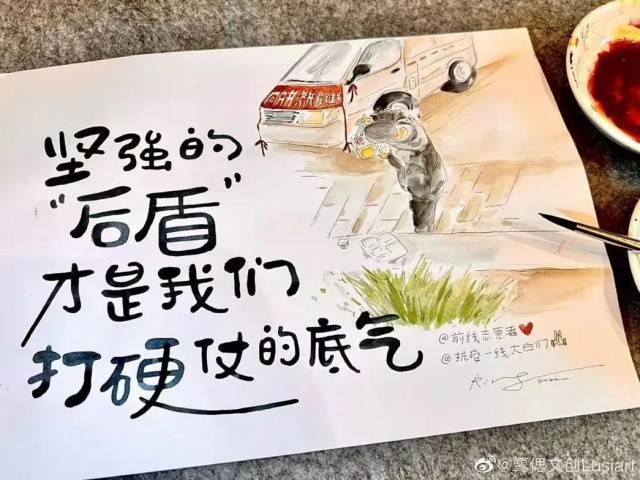 坚强的
“后盾”
才是我们
打硬仗的底气
@前线志愿者
@抗疫一线大白们
2022
@笔偶文创Lusiart